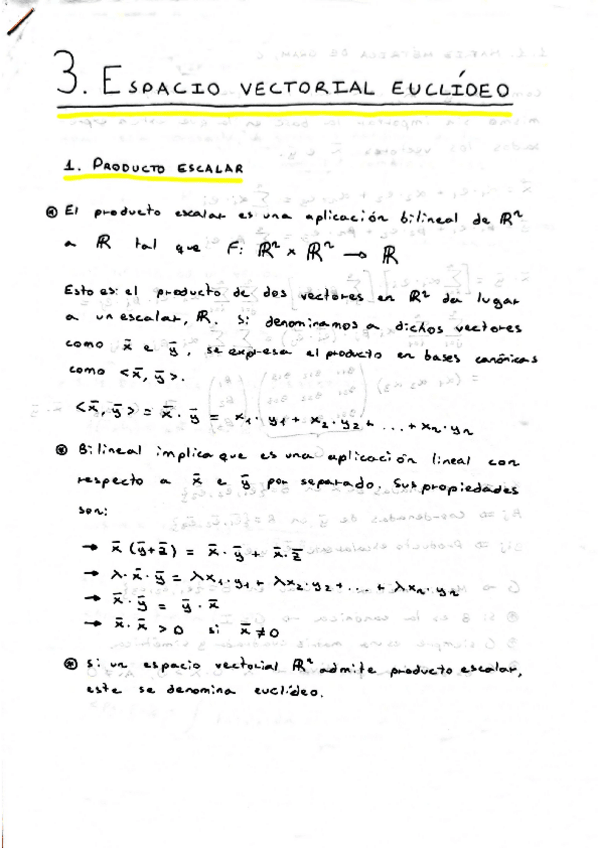 3. ESPACIO VECTORIAL EUCLÍDEO
1. PRODUCTO ESCALAR
El producto escalar es una aplicación bilineal de ℝⁿ
a ℝ tal que F: ℝⁿ × ℝⁿ → ℝ
Esto es: el producto de dos vectores en ℝⁿ da lugar
a un escalar, ℝ. Si denominamos a dichos vectores
como x̄ e ȳ, se expresa el producto en bases canónicas
como <x̄, ȳ>.
<x̄, ȳ> = x̄ · ȳ = x₁· y₁ + x₂· y₂ + ... + xₙ· yₙ
Bilineal implica que es una aplicación lineal con
respecto a x̄ e ȳ por separado. Sus propiedades
son:
→ x̄ (ȳ+z̄) = x̄ · ȳ + x̄ · z̄
→ λ· x̄ · ȳ = λx₁· y₁ + λx₂· y₂ + ... + λxₙ· yₙ
→ x̄ · ȳ = ȳ · x̄
→ x̄ · x̄ > 0 si x̄ ≠ 0
Si un espacio vectorial ℝⁿ admite producto escalar,
este se denomina euclídeo.